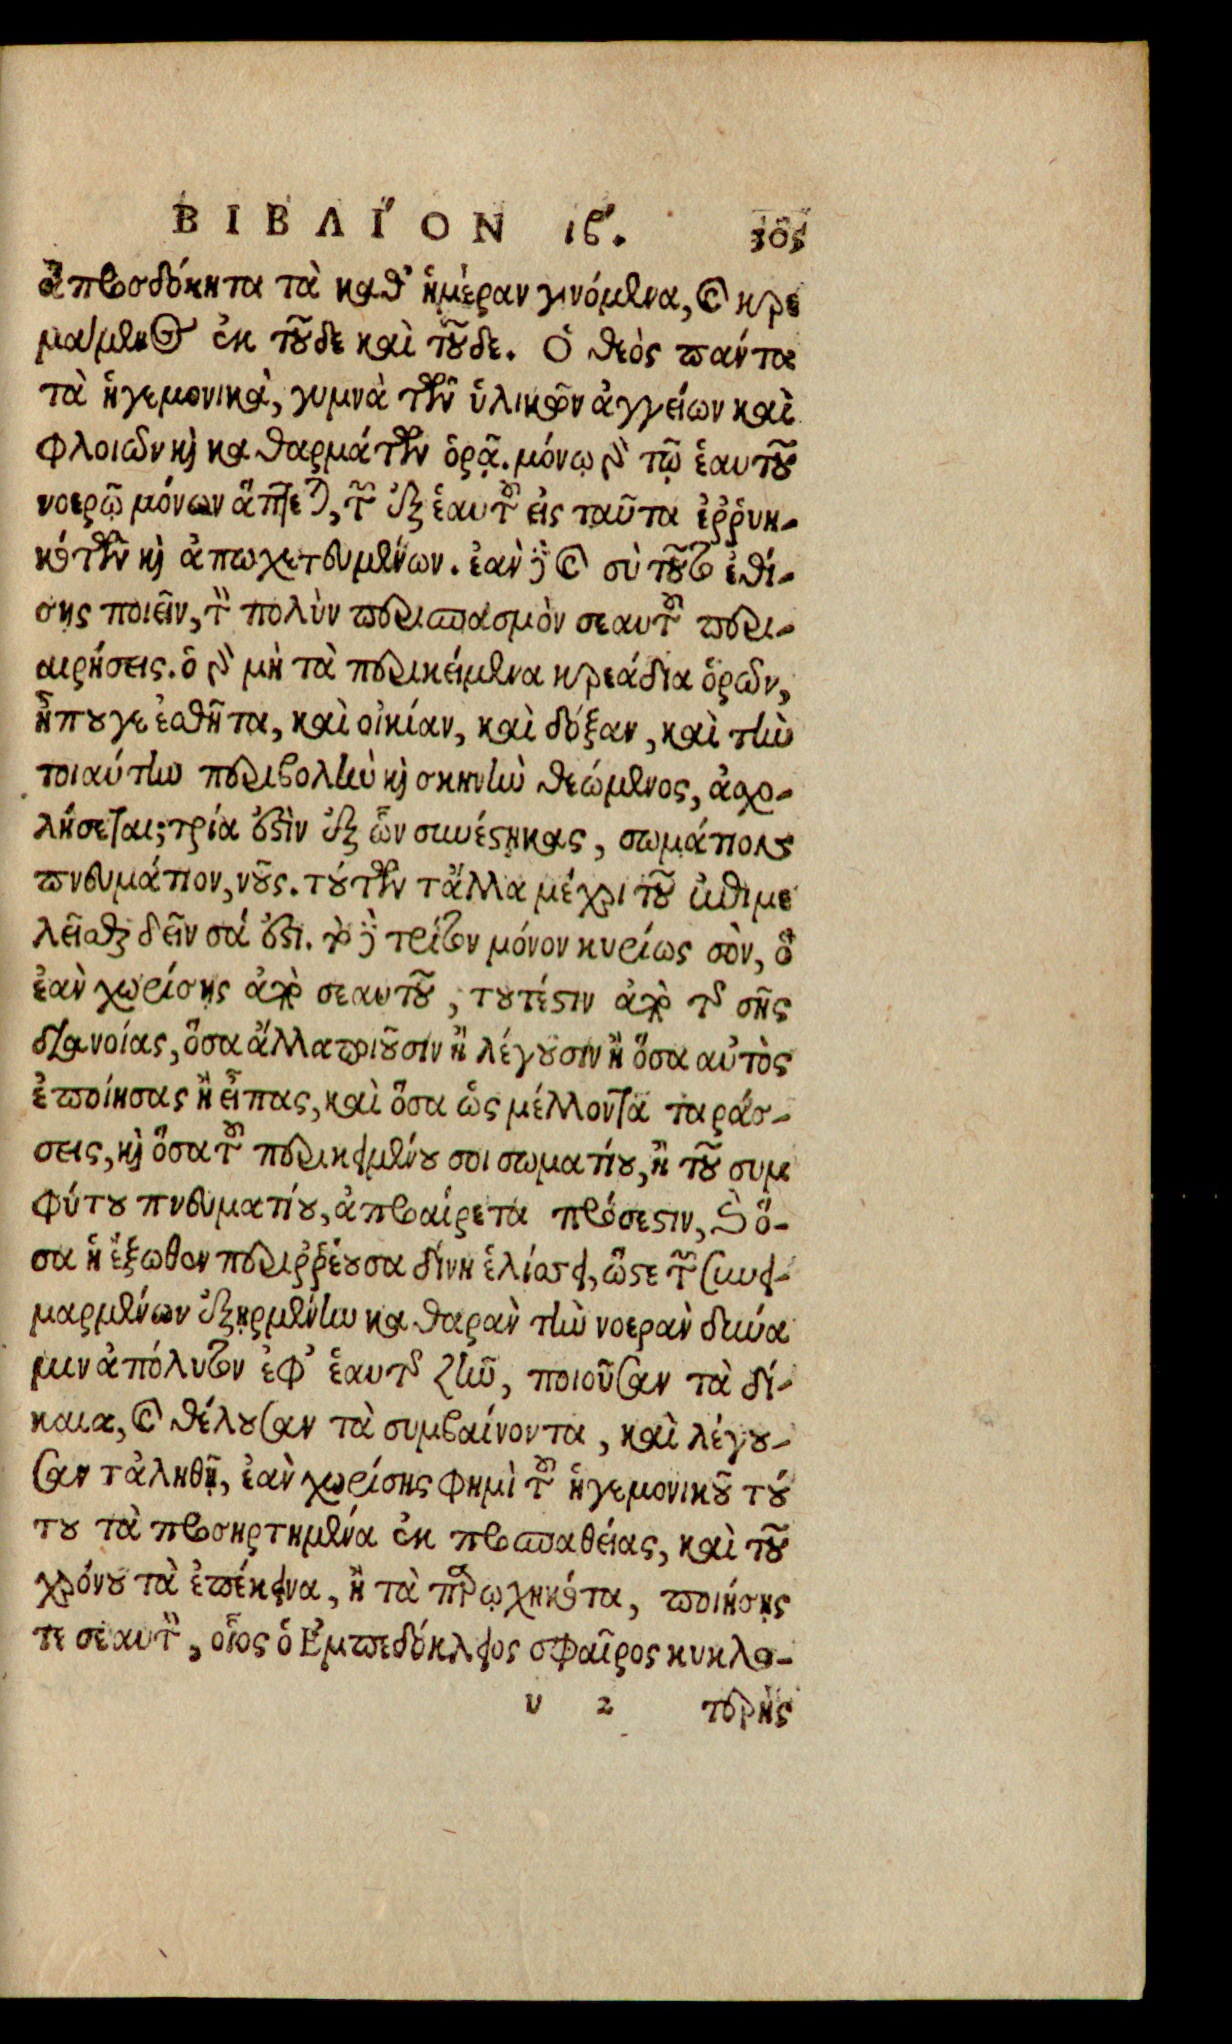 ΒΙΒΛΊΟΝ ιβ.
ἀπροσδόκητα τὰ καθ' ἡμέραν γινόμενα, καὶ κρε
μάμενος ἐκ τοῦδε καὶ τοῦδε. Ὁ θεὸς πάντα
τὰ ἡγεμονικὰ, γυμνὰ τῶν ὑλικῶν ἀγγείων καὶ
φλοιῶν καὶ καθαρμάτων ὁρᾷ. μόνῳ γὰρ τῷ ἑαυτοῦ
νοερῷ μόνων ἅπτεται, τῶν ἐξ ἑαυτοῦ εἰς ταῦτα ἐῤῥυη-
κότων καὶ ἀπωχετευμένων. ἐὰν δὲ καὶ σὺ τοῦτο ἐθί-
σῃς ποιεῖν, τὸν πολὺν περισπασμὸν σεαυτοῦ περι-
αιρήσεις. ὁ γὰρ μὴ τὰ περικείμενα κρεάδια ὁρῶν,
ἦπου γε ἐσθῆτα, καὶ οἰκίαν, καὶ δόξαν, καὶ τὴν
τοιαύτην περιβολὴν καὶ σκηνὴν θεώμενος, ἀσχο-
λήσεται; τρία ἐστὶν ἐξ ὧν συνέστηκας, σωμάτιον,
πνευμάτιον, νοῦς. τούτων τἄλλα μέχρι τοῦ ἐπιμε
λεῖσθαι δεῖν σά ἐστι. τὸ δὲ τρίτον μόνον κυρίως σὸν, ὃ
ἐὰν χωρίσῃς ἀπὸ σεαυτοῦ, τουτέστιν ἀπὸ τῆς σῆς
διανοίας, ὅσα ἄλλα ποιοῦσιν ἢ λέγουσιν ἢ ὅσα αὐτὸς
ἐποίησας ἢ εἶπας, καὶ ὅσα ὡς μέλλοντα ταράσ-
σεις, καὶ ὅσα τοῦ περικειμένου σοι σωματίου, ἢ τοῦ συμ
φύτου πνευματίου, ἀπροαίρετα πρόσεστιν, καὶ ὅ-
σα ἡ ἔξωθεν περιῤῥέουσα δίνη ἑλίσσει, ὥστε τῶν συνει-
μαρμένων ἐξῃρμένην καθαρὰν τὴν νοερὰν δύνα
μιν ἀπόλυτον ἐφ' ἑαυτῆς ζῆν, ποιοῦσαν τὰ δί-
καια, καὶ θέλουσαν τὰ συμβαίνοντα, καὶ λέγου-
σαν τἀληθῆ, ἐὰν χωρίσῃς φημὶ τοῦ ἡγεμονικοῦ τού
του τὰ προσηρτημένα ἐκ προσπαθείας, καὶ τοῦ
χρόνου τὰ ἐπέκεινα, ἢ τὰ παρῳχηκότα, ποιήσῃς
τε σεαυτὸν, οἷος ὁ Ἐμπεδόκλειος σφαῖρος κυκλο-
υ 2 τερὴς